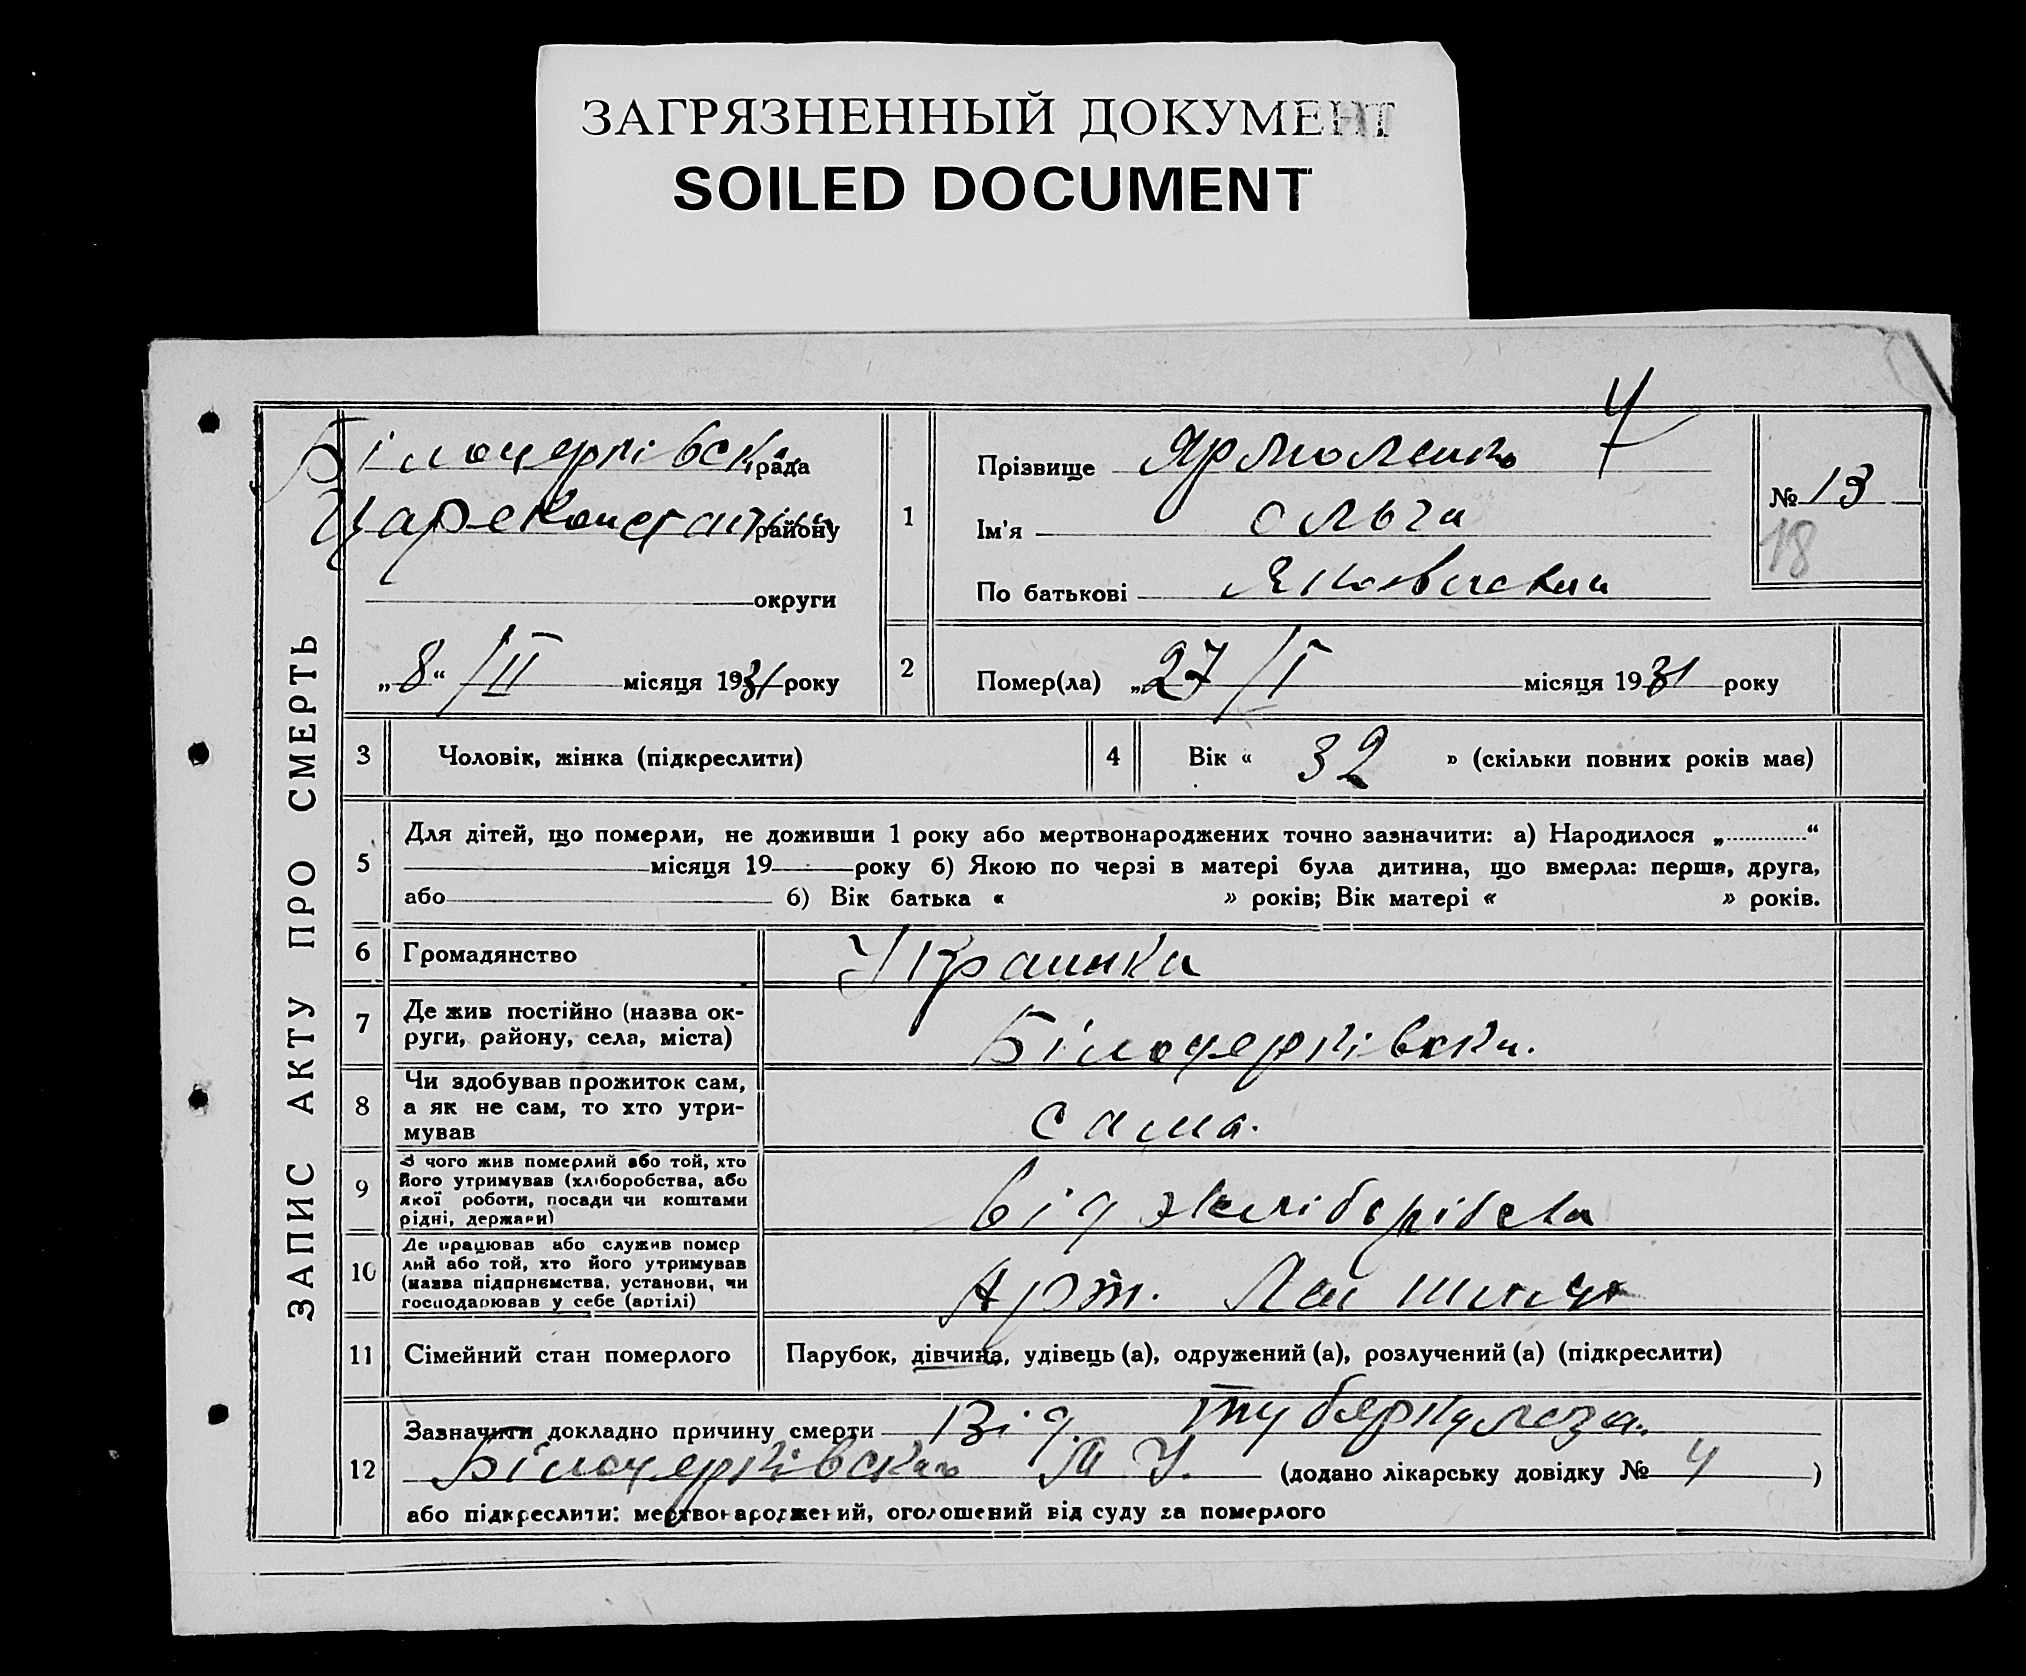 ЗАГРЯЗНЕННЫЙ ДОКУМЕНТ
SOILED DOCUMENT
ЗАПИС АКТУ ПРО СМЕРТЬ
Білоцерківська рада
Цареконстантин району
округи
„8“ /II місяця 1931 року
1
Прізвище Ярмоленко
Ім'я Ольга
По батькові
4
№ 13
18
2
Помер(ла) „27 /I місяця 1931 року
3
Чоловік, жінка (підкреслити)
4
Вік « 32 » (скільки повних років має)
5
Для дітей, що померли, не доживши 1 року або мертвонароджених точно зазначити: а) Народилося „ “
місяця 19 року б) Якою по черзі в матері була дитина, що вмерла: перша, друга,
або б) Вік батька « » років; Вік матері « » років.
6
Громадянство
Украинка
7
Де жив постійно (назва ок-
руги, району, села, міста)
Білоцерківка.
8
Чи здобував прожиток сам,
а як не сам, то хто утри-
мував
сама.
9
З чого жив померлий або той, хто
його утримував (хліборобства, або
якої роботи, посади чи коштами
рідні, держави)
від
10
Де працював або служив помер
лий або той, хто його утримував
(назва підприємства, установи, чи
господарював у себе (артілі)
Арт.
11
Сімейний стан померлого
Парубок, дівчина, удівець (а), одружений (а), розлучений (а) (підкреслити)
12
Зазначити докладно причину смерти Від туберкулеза.
(додано лікарську довідку № 4 )
або підкреслити: мертвонароджений, оголошений від суду за померлого